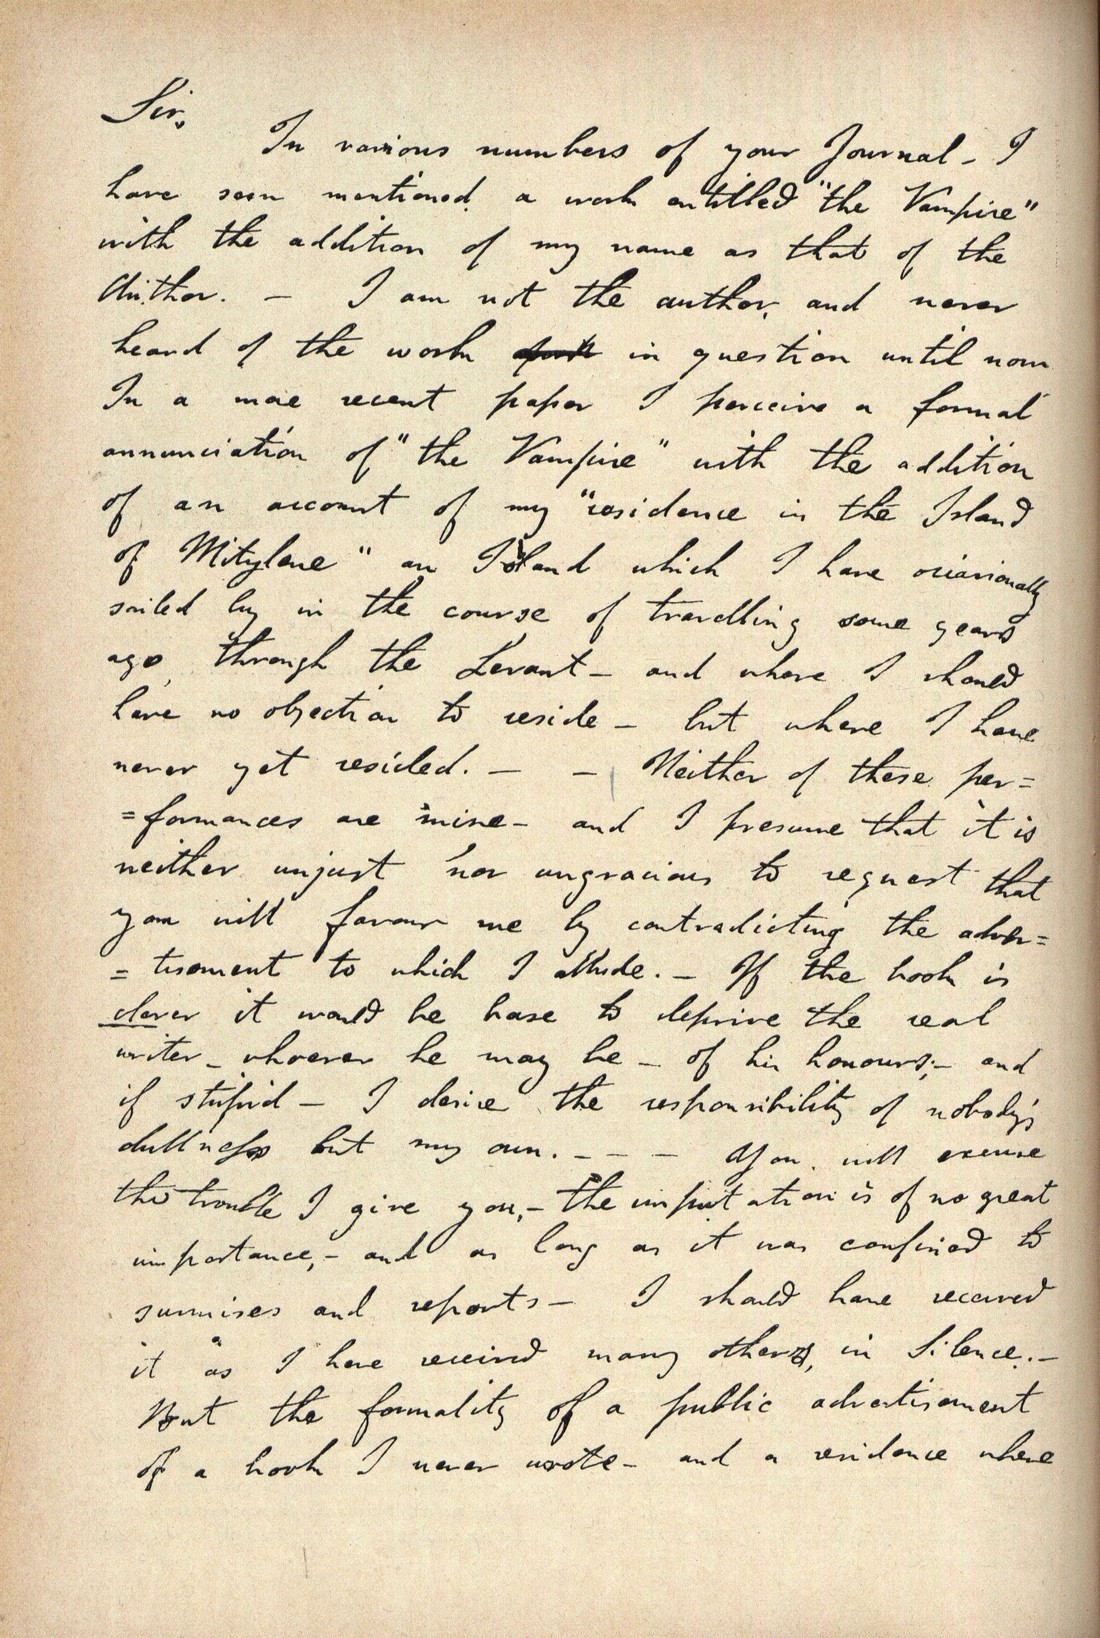 Sir,
In various numbers of your Journal – I
have seen mentioned a work entitled "the Vampire"
with the addition of my name as that of the
Author. – I am not the author, and never
heard of the work in question until now
In a more recent paper I perceive a formal
annunciation of "the Vampire" with the addition
of an account of my "residence in the Island
of Mitylene" an Island which I have occasionally
sailed by in the course of travelling some years
ago, through the Levant – and where I should
have no objection to reside – but where I have
never yet resided. – – Neither of these per=
=formances are mine – and I presume that it is
neither unjust nor ungracious to request that
you will favour me by contradicting the adver=
=tisement to which I allude. – If the book is
clever it would be base to deprive the real
writer – whoever he may be – of his honours; – and
if stupid – I desire the responsibility of nobody's
dullness but my own. – – – You will excuse
the trouble I give you, – the imputation is of no great
importance, – and as long as it was confined to
surmises and reports – I should have received
it as I have received many others, in Silence. –
But the formality of a public advertisement
of a book I never wrote – and a residence where